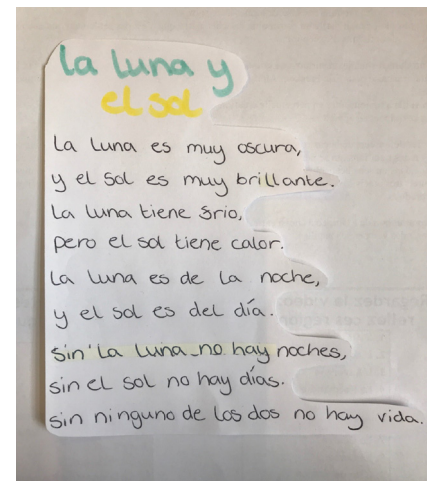 la luna y
el sol
La luna es muy oscura,
y el sol es muy brillante.
La luna tiene frio,
pero el sol tiene calor.
La luna es de la noche,
y el sol es del día.
sin la luna no hay noches,
sin el sol no hay días.
sin ninguno de los dos no hay vida.